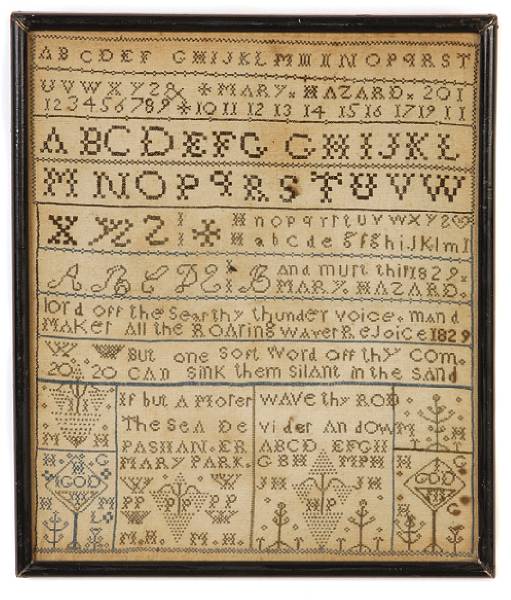 ABCDEF GHIJKLMIIINOPQRST
UVWXYZ& MARY HAZARD. 201
123456789 10 11 12 13 14 15 16 17 19 11
ABCDEFG GHIJKL
MNOPQRSTUVW
XYZ nopqrstuvwxyz
abcde fghijklmI
A B C D E B and must this 1829
MARY HAZARD.
lord off the Searthy thunder voice. mand
MAKer All the ROAring waves ReJoice 1829
But one Sort Word off thy Com.
20 20 CAN Sink them Silant in the SAnd
If but A Moses WAVE thy ROD
The Sea De vider And dowM
M H
PASHAN. ER ABCD EFGH
MARY PARK. GBH MPH
H G
GOD
JH JH
PP PP
P P
H P
M.H. M.H.
H G
GOD